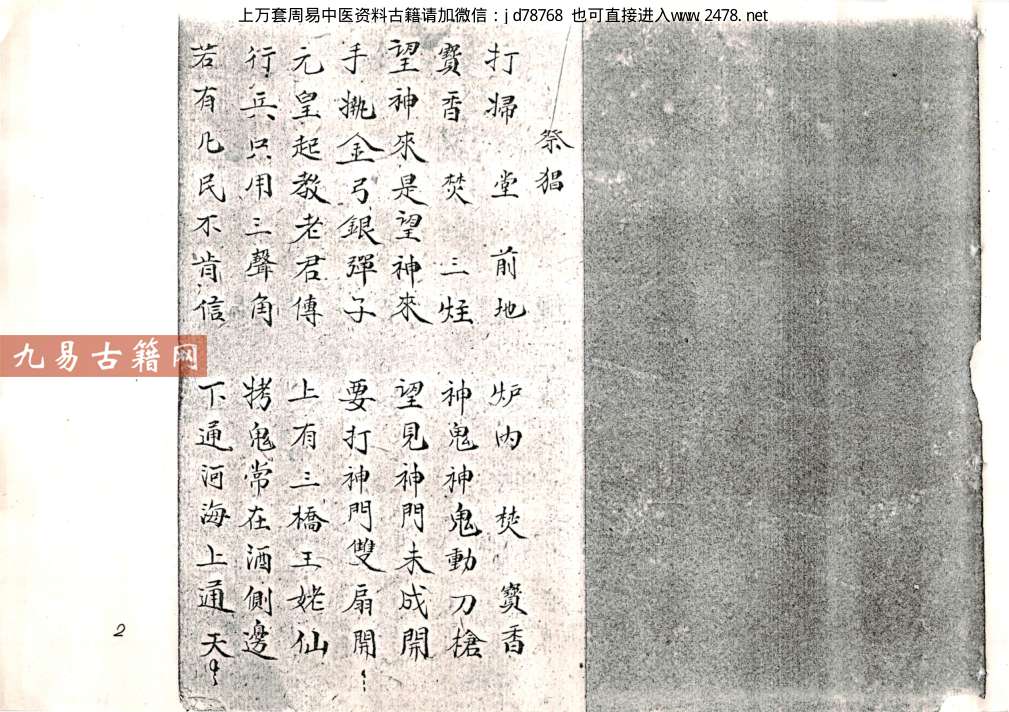 上万套周易中医资料古籍请加微信：jd78768 也可直接进入www.2478.net
祭猖
打掃堂前地 炉内焚寳香
寳香焚三炷 神鬼神鬼動刀槍
望神來是望神來 望見神門未成開
手執金弓銀彈子 要打神門雙扇開
元皇起教老君傳 上有三橋王姥仙
行兵只用三聲角 拷鬼常在酒側邊
若有凡民不肯信 下通河海上通天
九易古籍网
2